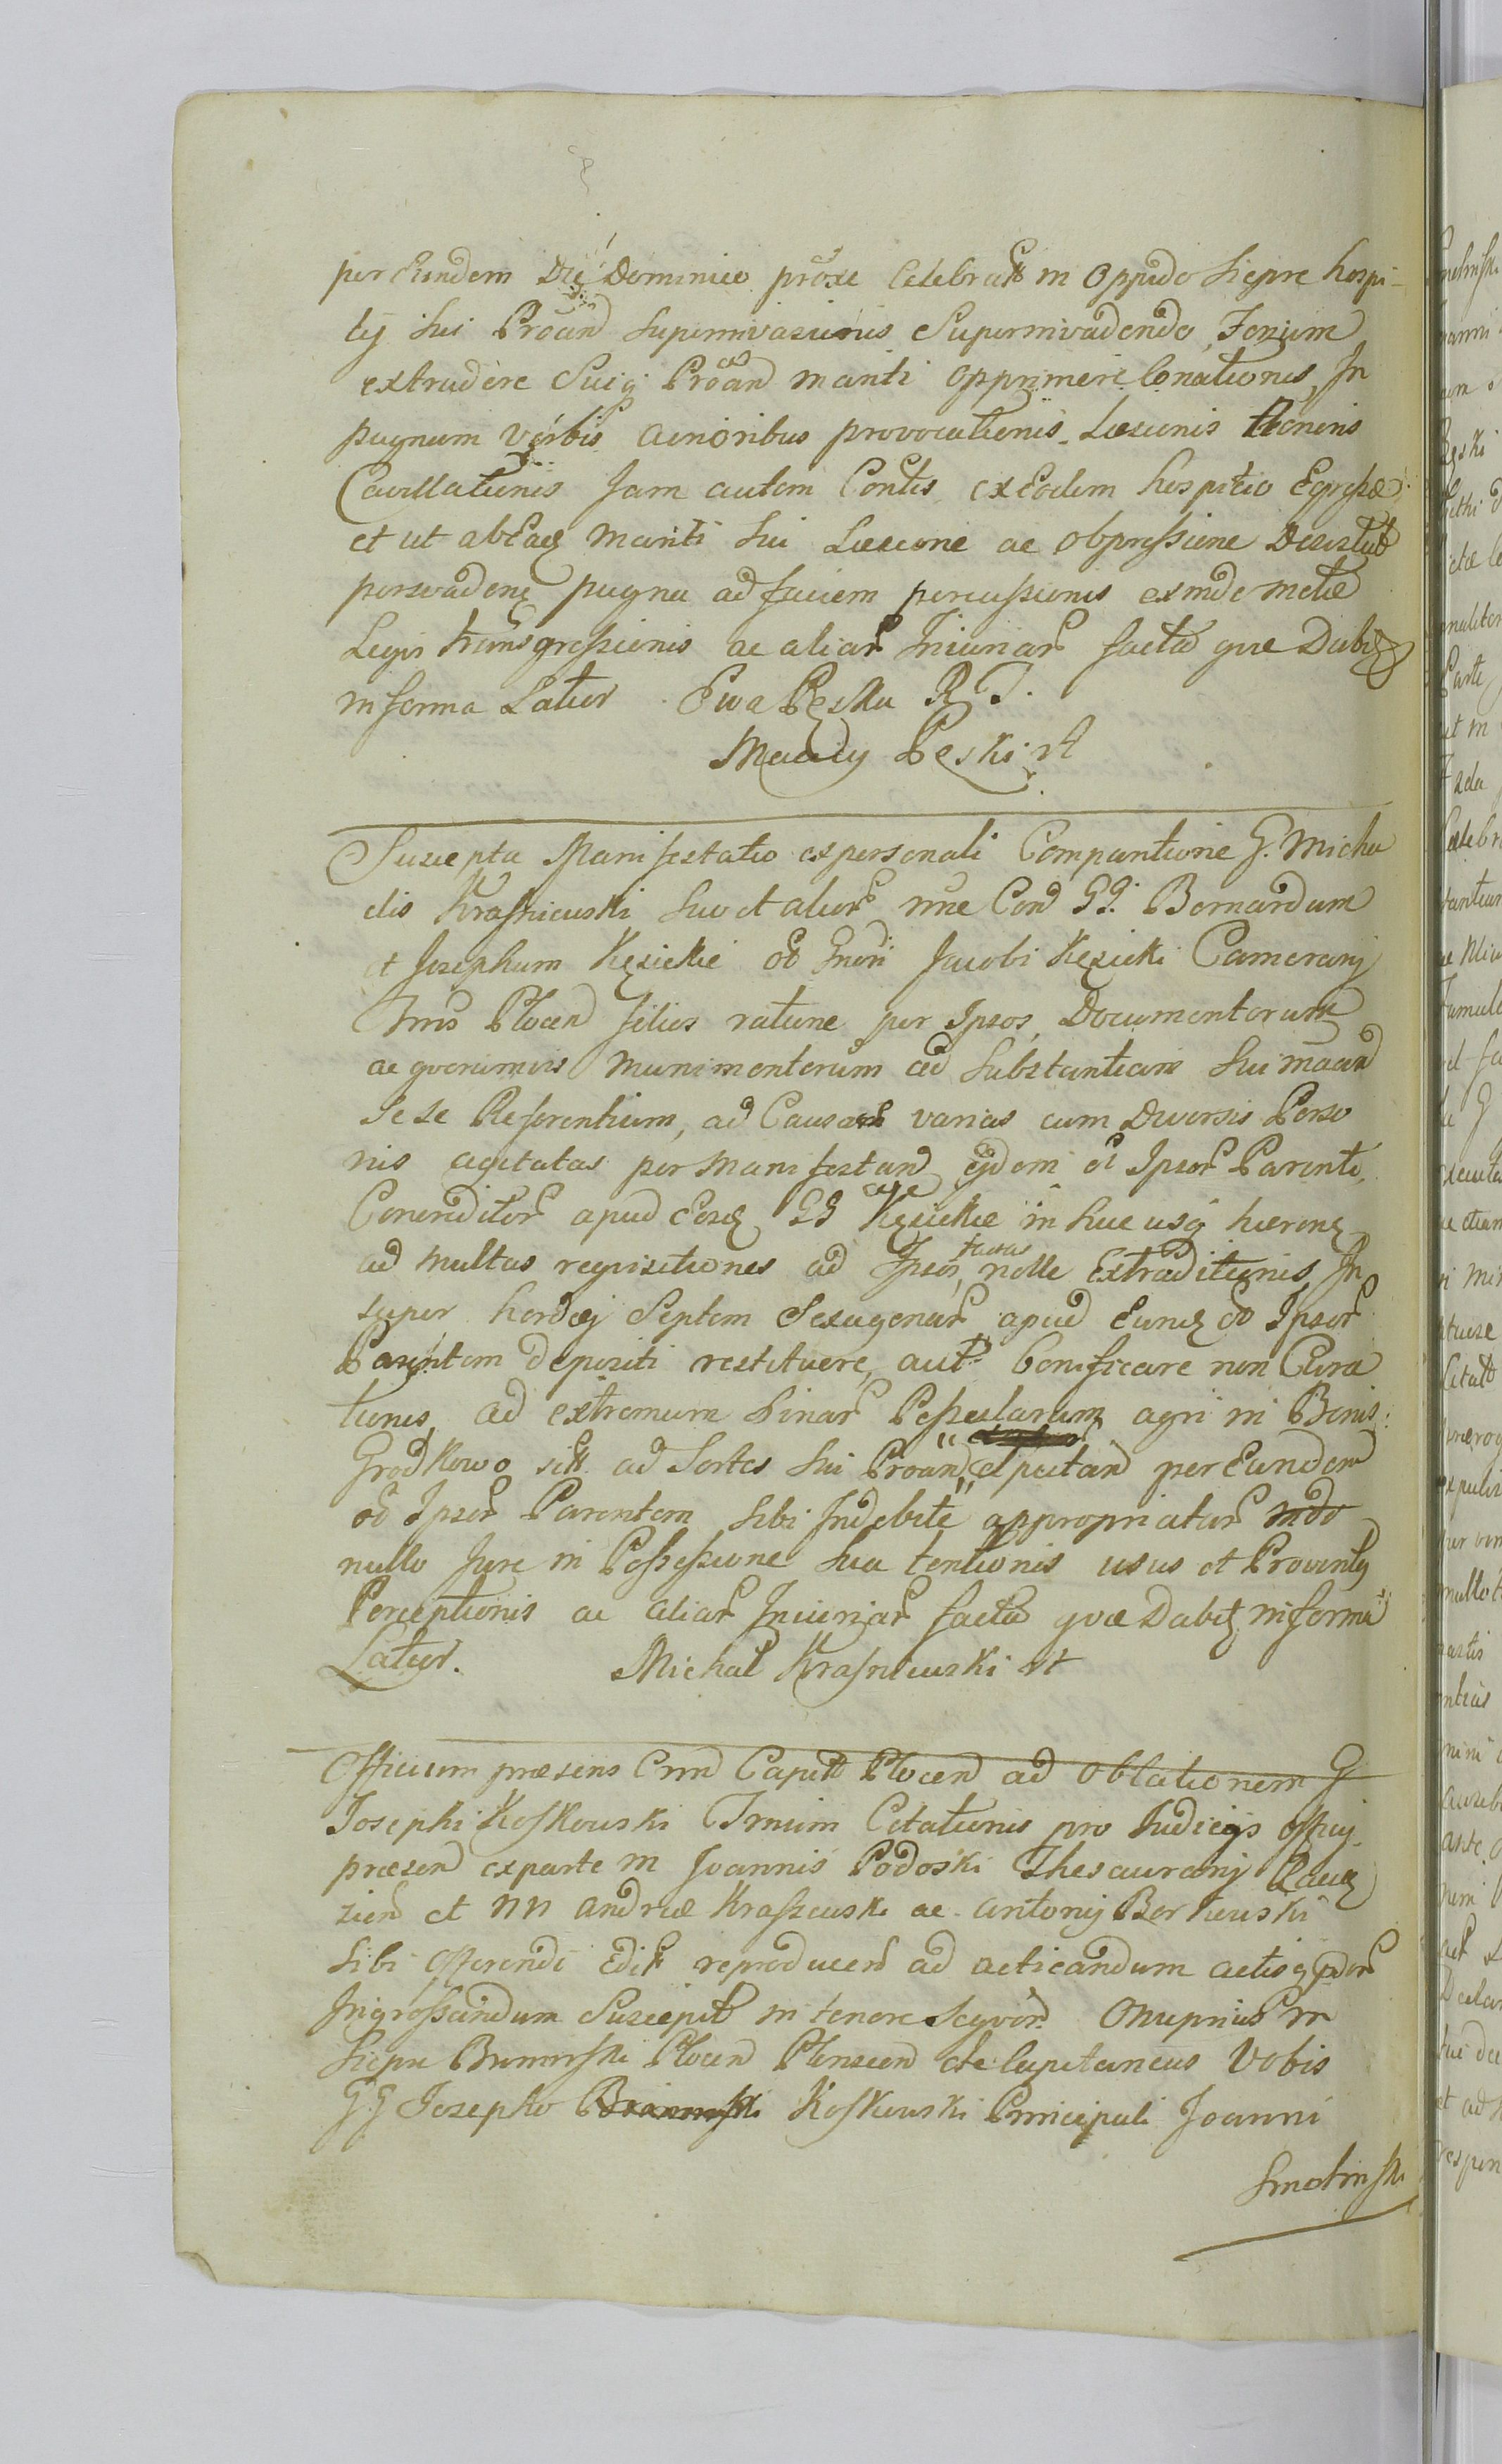 per Eundem Die Dominico proxe Celebratt in Oppido Siepre hospi-
tij sui Proand superinvasionis Superinvadendo, Forum
extrudere Suiq Proand mariti opprimere Conationis, In
pugnam verbis acrioribus provocationis Læsionis Honoris
Cavillationis Jam autem Contis ex Eodem hospitio Egressæ
et ut ab Eadz mariti sui Læsione ac obpressione Desistat
persvadenz pugna ad faciem percussionis exinde metæ
Legis transgressionis ac aliar Iniuriar facta que Dabitz
in forma Latior Ewa Pęska R T.
Maciey Pęski rt
Suscepta Manifestatio ex personali Comparitione G. Micha
elis Krasniewski suo et alior nne Cond GG. Bernardum
et Josephum Kęsickie ol Gnosi Jacobi Kęsicki Camerarij
Trris Plocen filios ratione per Ipsos, Documentorum
ac quorumvis munimentorum ad Substantiam sui maand
Sese Referentium, ad Causas varias cum Diversis Perso
nis agitatas per Manifestand ejdem ol Ipsor Parenti,
Concreditor apud Eosdz GG Kęsickie in huc usq hærenz
ad multas requisitiones ad Ipsos, factas nolle Extraditionis In
super hordej Septem Sexagenar apud Eundz ol Ipsor
Parentem depositi restituere, aut bonificare non Cura
tionis, ad extremum binar Pessularum agri in Bonis
Grodkowo sitt ad Sortes sui Proand spectand per Eundem
ol Ipsor Parentem sibi Indebite appropriatar
nullo Jure in Possessione sua tentionis usus et Proventz
Perceptionis ac aliar Iniuriar facta quæ Dabitz in forma
Latior. Michał Krasniewski rt
Officium præsens Crnd Capitt Plocen ad Oblationem G
Josephi Koskowski Trmini Citationis pro Judicijs Officij
præsend ex parte M Joannis Podoski Thesaurarij
zien et NN Andreæ Kraszewski ac Antonij Berkowski
sibi Offerendi Edit reproducen ad acticandum actisq pdor
Ingrossandum Suscepit in tenore seqven Onuprius in
Siepre Plocen Plonscen etc Capitaneus Vobis
G.G Josepho Koskowski Principali Joanni
Smolinski